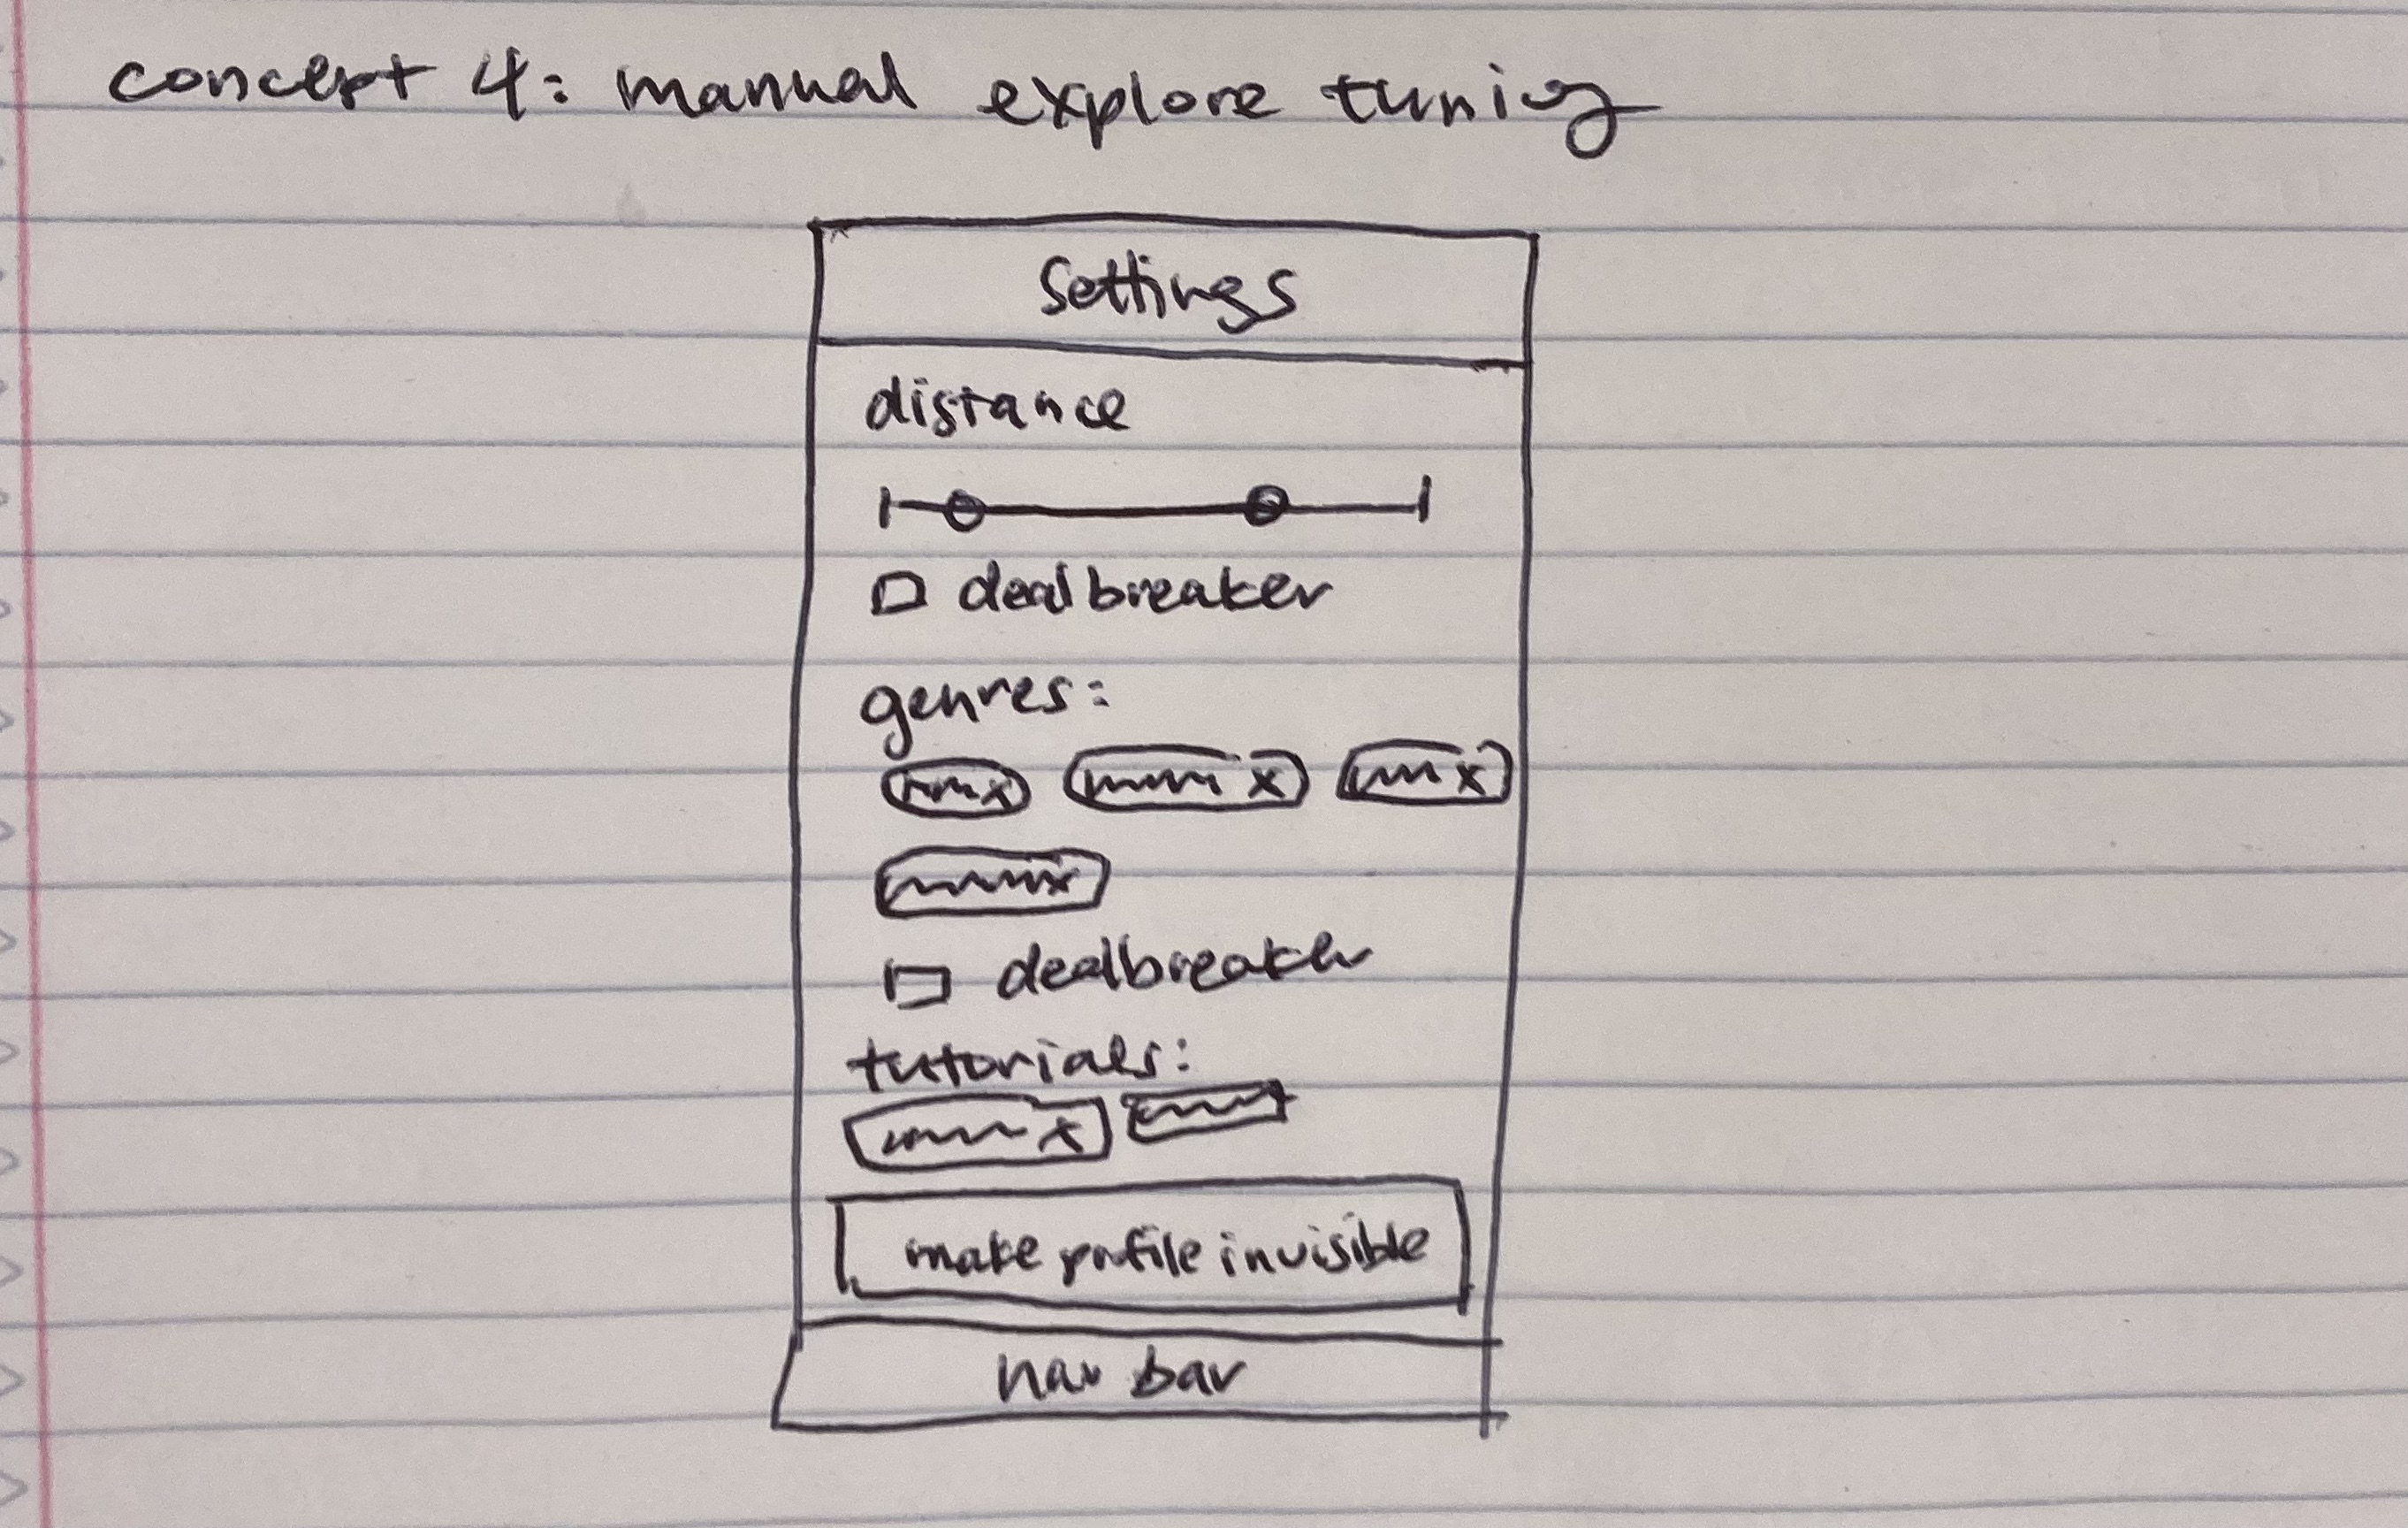 concept 4: manual explore tuning
Settings
distance
dealbreaker
genres:
x x x
x
dealbreaker
tutorials:
x
make profile invisible
nav bar